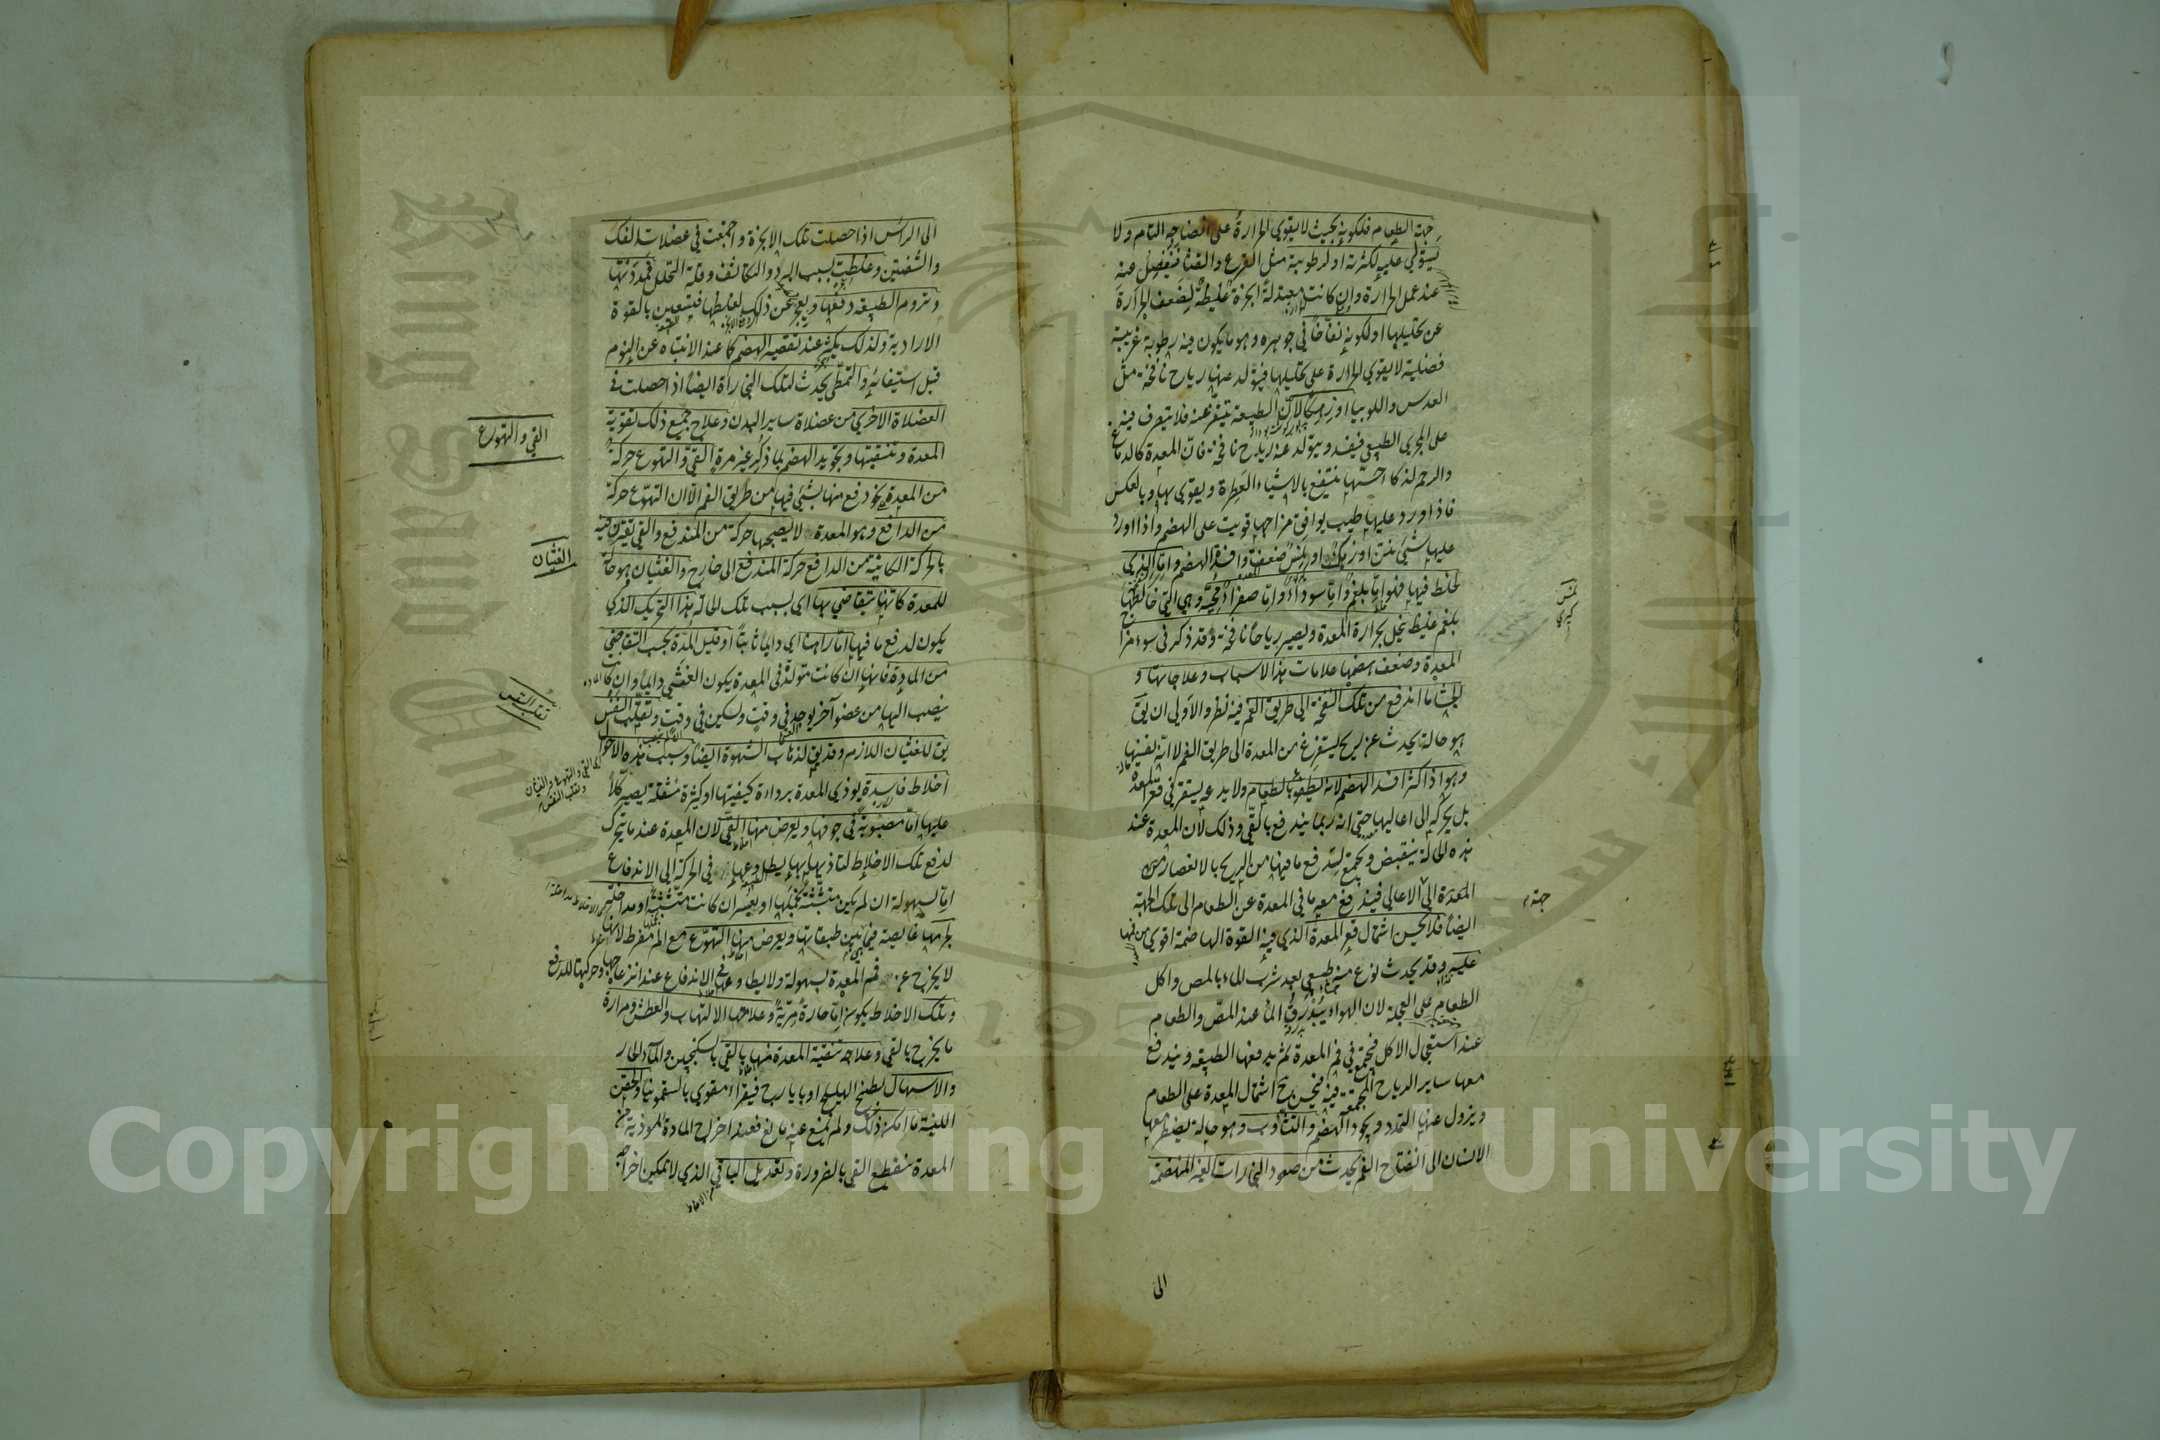 جهة الطعام فلكونه بحيث لا يقوي الحرارة على انضاجه التام ولا
يستولي عليه لكثرته او لرطوبته مثل القرع والقثا فينفصل عنه
عند عمل الحرارة وان كانت معتدلة ابخرة غليظة ليضعف الحرارة
عن تحليلها او لكونه نفاخا في جوهره وهو ما يكون فيه رطوبة غريبة
فضلية لا يقوي الحرارة على تحليلها فيتولد عنها رياح نافخة مثل
العدس واللوبيا او زهكا لان الطبيعة يتنفر عنه فلا يتصرف فيه
على المجرى الطبيعي فيفسد ويتولد عنه رياح نافخة فان المعدة كالدماغ
والرحم لذكا حسها ينتفع بالاشياء العطرة ويقوي بها وبالعكس
فاذا ورد عليها طيب يوافق مزاجها قويت على الهضم واذا اورد
عليها شيء نتن او زهك ضعفت وافسد الهضم واما الذي
لخلط فيها فهو اما بلغم واما سوداء واما صفراء محية وهي التي خالطها
بلغم غليظ يحل بحرارة المعدة ويصير رياحا نافخة وقد ذكر في سوء مزاج
المعدة وضعف هضمها علامات هذه الاسباب وعلاجاتها و
الجشا ما اندفع من تلك النفخة الى طريق الفم فيه نظر والاولى ان يق
هو حالة يحدث عن ريح يستفرغ من المعدة الى طريق الفم لا انه نفسها
وهو اذا كثر افسد الهضم لانه يطفو بالطعام ولا يدعه يستقر في قعر المعدة
بل يحركه الى اعاليها حتى انه ربما يندفع بالقي وذلك لان المعدة عند
هذه الحالة ينقبض ويجمع ليدفع ما فيها من الريح بالانعصار من
المعدة الى الاعالي فيندفع معه ما في المعدة عن الطعام الى تلك الجهة
ايضا فلا يحسن اشتمال قعر المعدة الذي فيه القوة الهاضمة اقوى من فمها
عليه وقد يحدث نوع منه طبيعي بعد شرب الماء بالمص واكل
الطعام على العجلة لان الهواء الماء عند المص والطعام
عند استعجال الاكل فيجتمع في فم المعدة ثم يدفعها الطبيعة ويندفع
معها ساير الرياح المجتمعة فيه فيحسن ح اشتمال المعدة على الطعام
ويزول عنها التمدد ويجود الهضم والتثاوب وهو حالة يضطر معها
الانسان الى انفتاح الفم يحدث من صعود البخارات الغير المنهضمة
الى
جهة
الى الراس اذا حصلت تلك الابخرة واجتمعت في عضلات الفك
والشفتين وغلظت بسبب البرد والتكاثف وقلة التحلل فمددتها
وتروم الطبيعة دفعها ويعجز عن ذلك لغلظها فيستعين بالقوة
الارادية ولذلك يكثر عند تقصير الهضم كما عند الانتباه عن النوم
قبل استيفائه والتمطي يحدث لتلك البخارات ايضا اذا حصلت في
العضلاة الاخرى من عضلاة ساير البدن وعلاج جميع ذلك تقوية
المعدة وتنقيتها وتجويد الهضم بما ذكر غير مرة القي والتهوع حركة
من المعدة نحو دفع منها بشيء فيها من طريق الفم الا ان التهوع حركة
من الدافع وهو المعدة لا يصحبها حركة من المندفع والقي يقترن فيه
بالحركة الكاينة من الدافع حركة المندفع الى خارج والغثيان هو حالة
للمعدة كانها يتقاضي بها اي بسبب تلك الحالة هذا التحريك الذي
يكون لدفع ما فيها اما راهنا اي دايما ثابتا او قليل المدة بحسب التقاضي
من المادة فانها ان كانت متولدة في المعدة يكون الغثي دايما وان كانت
ينصب اليها من عضو آخر يوجد في وقت وسكين في وقت وتقلب النفس
يق للغثيان اللازم وقد يق لذهاب الشهوة ايضا وسبب هذه الاحوال
اخلاط فاسدة يوذي المعدة برداءة كيفيتها او كثرة مثقلة يصير كلا
عليها اما مصبوبة في جوفها ويعرض منها القي لان المعدة عند ما تتحرك
لدفع تلك الاخلاط لتاذيها بها في الحركة الى الاندفاع
اما لسهولة ان لم يكن متشبثة بخملها او بعسر ان كانت متشبثة او مداخلة
لجرمها غايصة فيما بين طبقاتها ويعرض منها التهوع مع الم مفرط لانها
لا يخرج عن فم المعدة بسهولة ولا يطاوعها في الاندفاع عند انزعاجها وحركتها للدفع
وتلك الاخلاط يكون اما حارة مرية وعلامتها الالتهاب والعطش ومرارة
ما يخرج بالقي وعلاجه تنقية المعدة منها بالقي بالسكنجبين والماء الحار
والاسهال بطبيخ الهليلج او بايارج فيقرا مقوي بالسقمونيا والحقن
اللينة ما امكن ذلك ولم يمنع عنه مانع فعند اخراج المادة الموذية من
المعدة ينقطع القي بالضرورة وتعديل الباقي الذي لا يمكن اخراجه
القي والتهوع
الغثيان
تقلب النفس
اي القي والتهوع والغثيان
وتقلب النفس
Copyright © King Saud University
King Saud University
1957